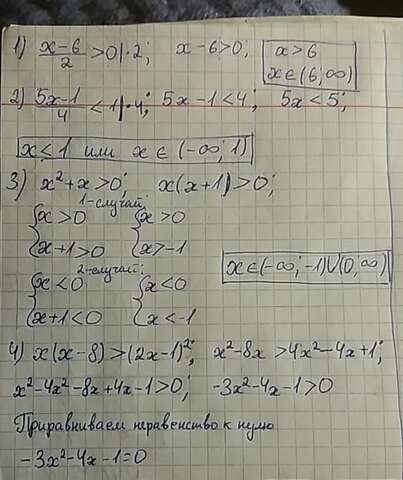 1) x-6/2 >0|·2; x-6>0; x>6
x∈(6;∞)
2) 5x-1/4 <1|·4; 5x-1<4; 5x<5;
x<1 или x∈(-∞; 1)
3) x²+x>0; x(x+1)>0;
1-случай:
{x>0 {x>0
x+1>0 x>-1
x∈(-∞;-1)∪(0,∞)
2-случай:
{x<0 {x<0
x+1<0 x<-1
4) x(x-8)>(2x-1)²; x²-8x>4x²-4x+1;
x²-4x²-8x+4x-1>0; -3x²-4x-1>0
Приравниваем неравенство к нулю
-3x²-4x-1=0